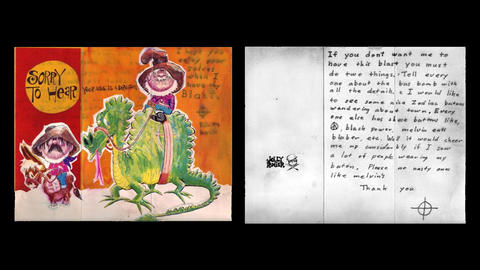 SORRY
TO HEAR
YOUR ASS IS A DRAGON
I hope you
enjoy your
selves
when I
have my
Blast.
If you dont want me to
have this blast you must
do two things. 1 Tell every
one about the bus bomb with
all the details. 2 I would like
to see some nice Zodiac butons
wandering about town. Every
one else has these buttons like,
☮, black power, melvin eats
blubber, etc. Well it would cheer
me up considerbly if I saw
a lot of people wearing my
buton. Please no nasty ones
like melvin's
Thank you
JOLLY
ROGER